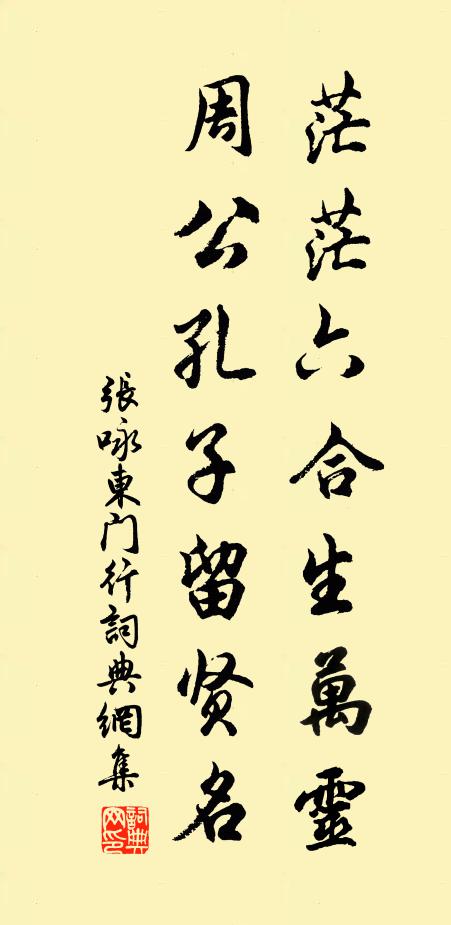 茫茫六合生萬靈
周公孔子留贤名
張咏東门行詞典網集
詞典
网印